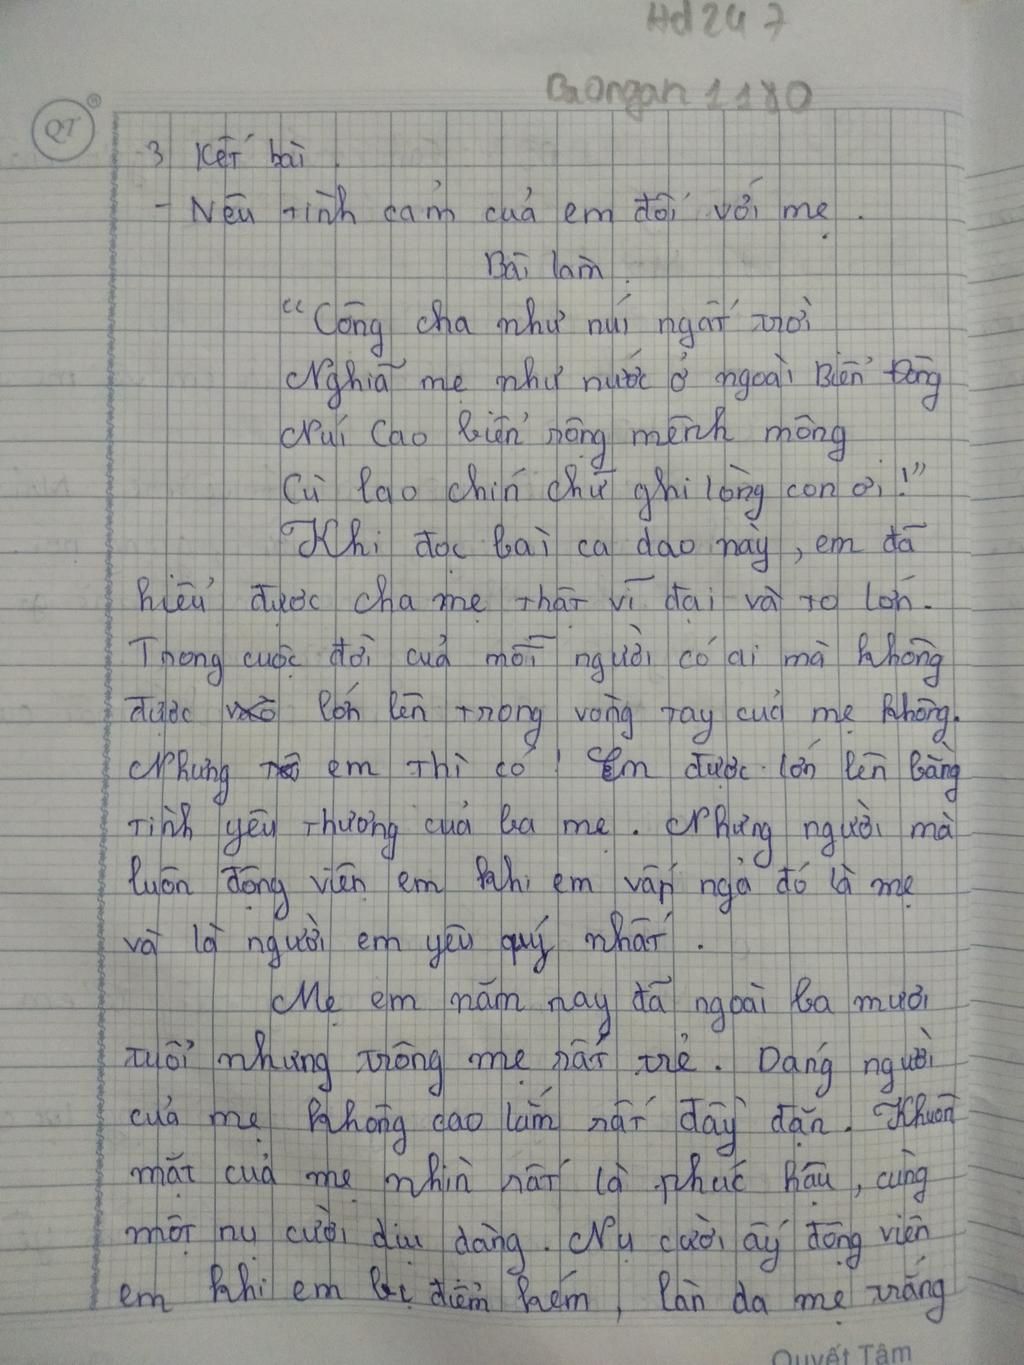 Hd247
Baongan1180
QT
3 Kết bài.
- Nêu tình cảm của em đối với mẹ.
Bài làm.
"Công cha như núi ngất trời
Nghĩa mẹ như nước ở ngoài Biển Đông
Núi Cao biển rộng mênh mông
Cù lao chín chữ ghi lòng con ơi!"
Khi đọc bài ca dao này, em đã
hiểu được cha mẹ thật vĩ đại và to lớn.
Trong cuộc đời của mỗi người có ai mà không
được lớn lên trong vòng tay của mẹ không.
Nhưng em thì có! Em được lớn lên bằng
tình yêu thương của ba mẹ. Nhưng người mà
luôn động viên em khi em vấp ngã đó là mẹ
và là người em yêu quý nhất.
Mẹ em năm nay đã ngoài ba mươi
tuổi nhưng trông mẹ rất trẻ. Dáng người
của mẹ không cao lắm rất đầy đặn. Khuôn
mặt của mẹ nhìn rất là phúc hậu, cùng
một nụ cười dịu dàng. Nụ cười ấy động viên
em khi em bị điểm kém, làn da mẹ trắng
Quyết Tâm